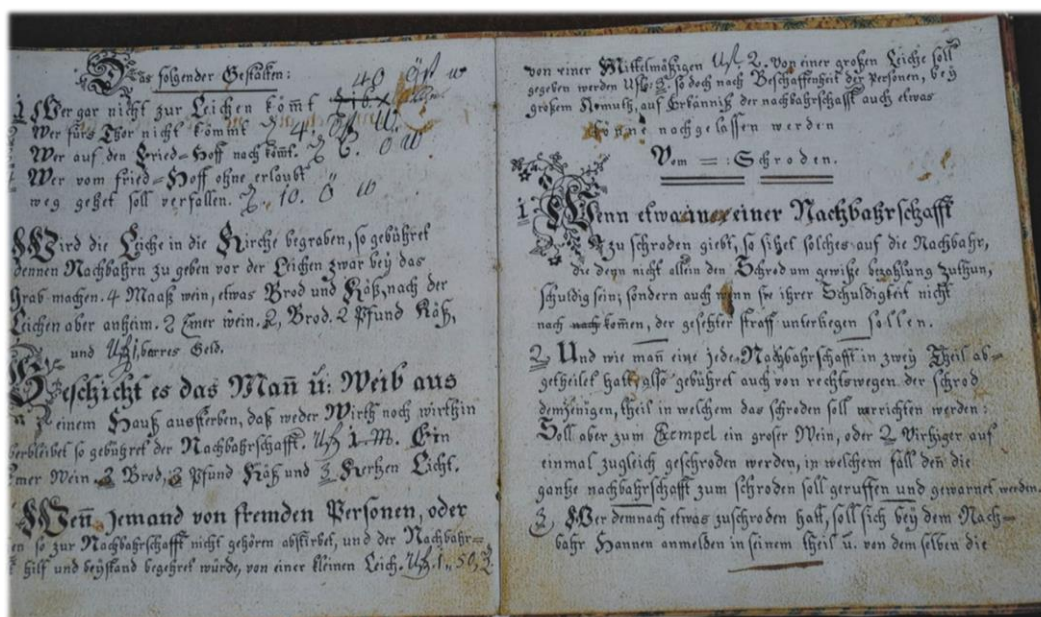 Das folgender Gestalten:
1 Wer gar nicht zur Leichen kömt 40
Wer fürs Thor nicht kömmt 4.
Wer auf den Fried=Hoff noch kömt.
Wer vom fried=Hoff ohne erlaubt
weg gehet soll verfallen. 10.
Wird die Leiche in die Kirche begraben, so gebühret
dennen Nachbahrn zu geben vor der Leichen zwar bey das
Grab machen. 4 Maaß wein, etwas Brod und Käß, nach der
Leichen aber anheim. 2 Emer wein. 2, Brod. 2 Pfund Käß,
und barres Geld.
Geschicht es das Man̄ ū: Weib aus
einem Hauß aussterben, daß weder Wirth noch wirthin
verbleibet so gebühret der Nachbahrschafft. Ein
Emer Wein. 2 Brod, 2 Pfund Käß und 3 Kertzen Licht.
Wen̄ Jemand von fremden Personen, oder
en so zur Nachbahrschafft nicht gehören abstirbet, und der Nachbahr=
hilf und beystand begehret würde, von einer kleinen Leich.
von einer Mittelmäßigen 2. Von einer großen Leiche soll
gegeben werden so doch nach Beschaffenheit der Personen, bey
großem Armuth, auf Erkänniß der nachbahrschafft auch etwas
könne nachgelassen werden
Vom =: Schroden.
1 Wenn etwa einer Nachbahrschafft
zu schroden giebt, so sihet solches auf die Nachbahr,
die denn nicht allein den Schrod um gewiße bezahlung zuthun,
schuldig sein; sondern auch wenn sie ihrer Schuldigkeit nicht
nach komen, der gesetzter straff unterliegen sollen.
2 Und wie man̄ eine jede Nachbahrschafft in zwey Theil ab=
getheilet hatt, also gebühret auch von rechtswegen der schrod
demjenigen, theil in welchem das schroden soll verrichten werden:
Soll aber zum Exempel ein groser Wein, oder 2 Virtziger auf
einmal zugleich geschroden werden, in welchem fall den̄ die
gantze nachbahrschafft zum schroden soll geruffen und gewarnet werden.
3 Wer demnach etwas zuschroden hatt, soll sich bey dem Nach=
bahr Hannen anmelden in seinem theil ū. von dem selben die